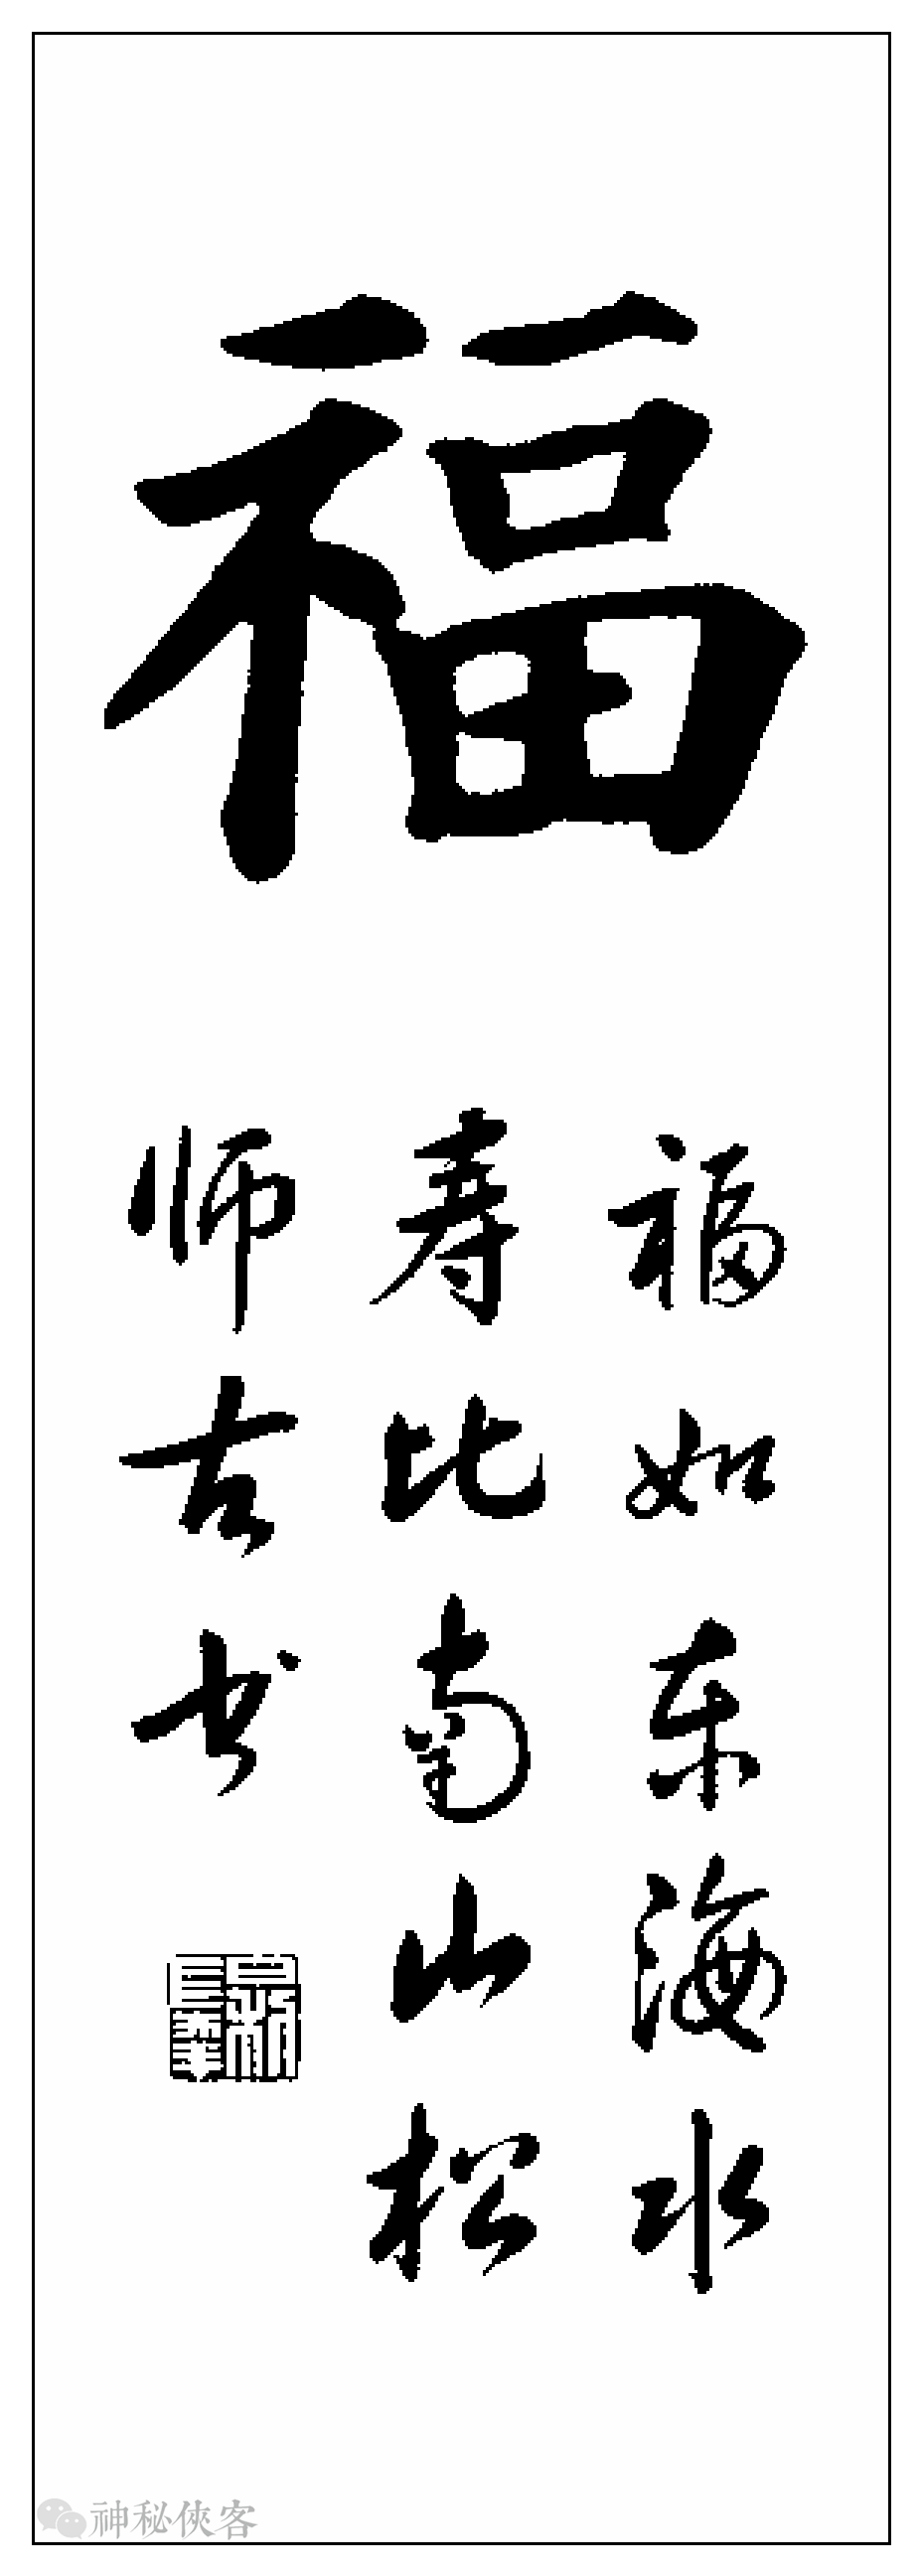 福
福如东海水
寿比南山松
师古书
神秘侠客